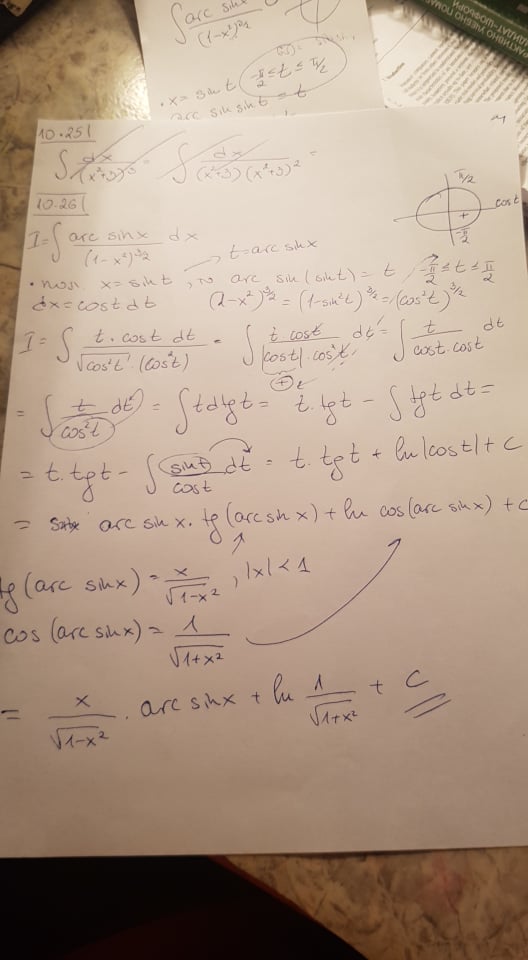 ∫ arc sinx / (1-x²)^3/2
• x = sint -π/2 ≤ t ≤ π/2
arc sin sint = t
10.25|
∫ dx/(x²+3)³ = ∫ dx/(x²+3)(x²+3)² =
10.26|
π/2
cost
+
-π/2
I = ∫ arc sinx / (1-x²)^3/2 dx
t = arc sinx
x = sint, то arc sin(sint) = t → -π/2 ≤ t ≤ π/2
dx = cost dt (1-x²)^3/2 = (1-sin²t)^3/2 = (cos²t)^3/2
I = ∫ t.cost dt / √cos²t.(cos²t) = ∫ t cost / |cost|.cos²t dt = ∫ t / cost.cost dt
+
= ∫ t/cos²t dt = ∫ t dtgt = t.tgt - ∫ tgt dt =
= t.tgt - ∫ sint/cost dt = t.tgt + ln|cost| + C
= arc sinx.tg(arc sinx) + ln cos(arc sinx) + C
tg(arc sinx) = x/√1-x², |x| < 1
cos(arc sinx) = 1/√1+x²
= x/√1-x² . arc sinx + ln 1/√1+x² + C